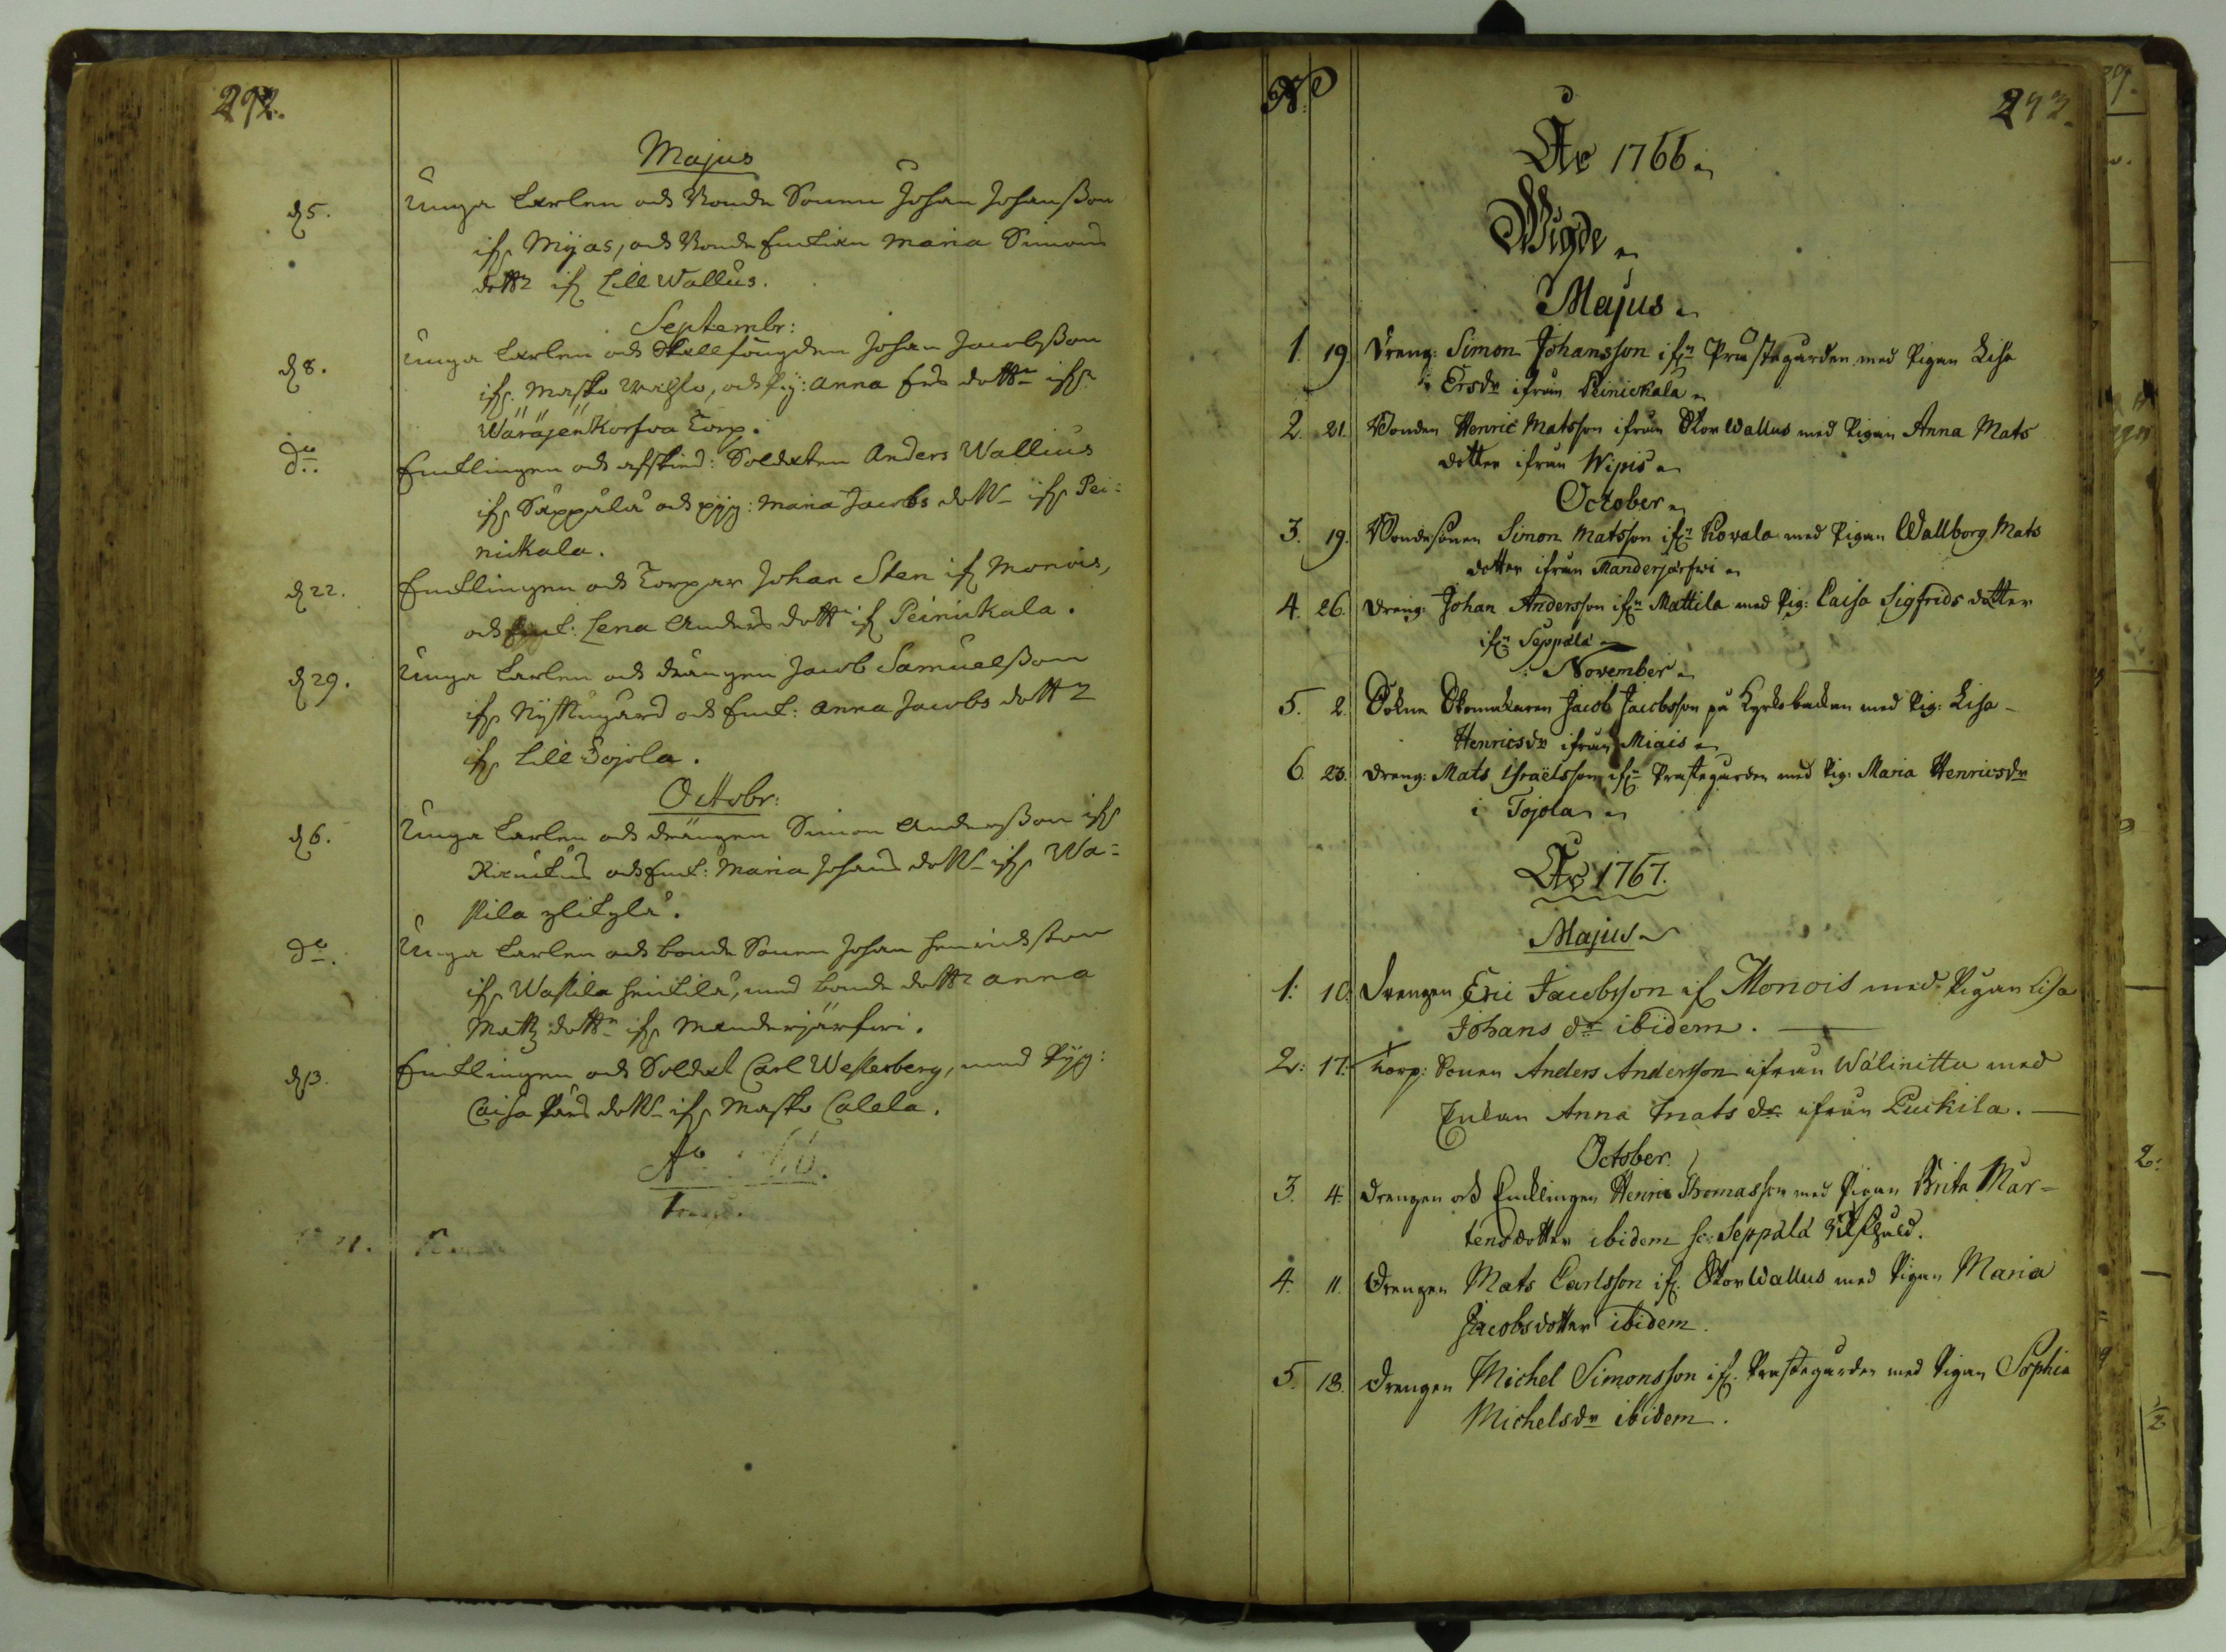 292.
Majus
d 5. Unga Karlen och Bonde Sonen Johan Johansson
ifr Mÿas, och Bonde Enkian Maria Simons
dottr if Lill Wallus.
Septembr:
d 8. Unga Karlen och Skallfougden Johan Jacobsson
ifr. Masko, och Pig: Anna Ers dottr ifr
Wäräjenkorfva Torp.
do Enklingen och afsked: Soldaten Anders Wallius
ifr Säppälä och pyg: Maria Jacobs dottr ifr Pei-
nickala.
d 22. Enklingen och Torpar Johan Sten if Monois,
och Enk: Lena Anders dottr if Peinickala.
d 29. Unga Karlen och drängen Jacob Samuelsson
ifr Nÿstugård och Enk: Anna Jacobs dottr
ifr Lill Tojola.
Octobr:
d 6. Unga Karlen och drängen Simon Andersson ifr
och Enk: Maria Johans dottr ifr Wa-
skila ylikylä.
do. Unga Karlen och bonde Sonen Johan Henricksson
ifr Waskila Heikilä, med bonde dottr Anna
Matz dottr ifr Manderjärfwi.
d 13. Enklingen och Soldat Carl Westerberg, med Pÿg:
Caisa dottr ifr Masko Calela.
Ao
No
293.
Åhr 1766
Wigde
Majus
1. 19. Dreng: Simon Johansson ifrn Prästegården med Pigan Lisa
Ersdr ifrån Peinickala
2. 21. Bonden Henric Matsson ifrån StorWallus med Pigan Anna Mats
dotter ifrån Wipis
October
3. 19. Bondesonen Simon Matsson ifrn Kovala med Pigan Wallborg Mats
dotter ifrån Manderjärfwi
4. 26. Dreng: Johan Andersson ifrn Mattila med Pig: Caisa Sigfrids dotter
ifrn Seppälä
November
5. 2. Sokne Skomakaren Jacob Jacobsson på Kyrkobacken med Pig: Lisa
Henricsdr ifrån Miais
6. 23. Dreng: Mats Israëlsson ifrn Prästegården med Pig: Maria Henricsdr
i Tojola
Åhr 1767.
Majus
1: 10. Drengen Eric Jacobsson if Monois med Pigan Lisa
Johans dr ibidem.
2: 17. Torp: Sonen Anders Andersson ifrån Wälinittu med
Enkan Anna Mats dr ifrån Puckila.
October
3. 4. Drengen och Enklingen Henric Thomasson med Pigan Brita Mår-
tensdotter ibidem sc: Seppälä
4. 11. Drengen Mats Carlsson if. StorWallus med Pigan Maria
Jacobsdotter ibidem.
5. 18. Drengen Michel Simonsson if. Prästegården med Pigan Sophia
Michelsdr ibidem.